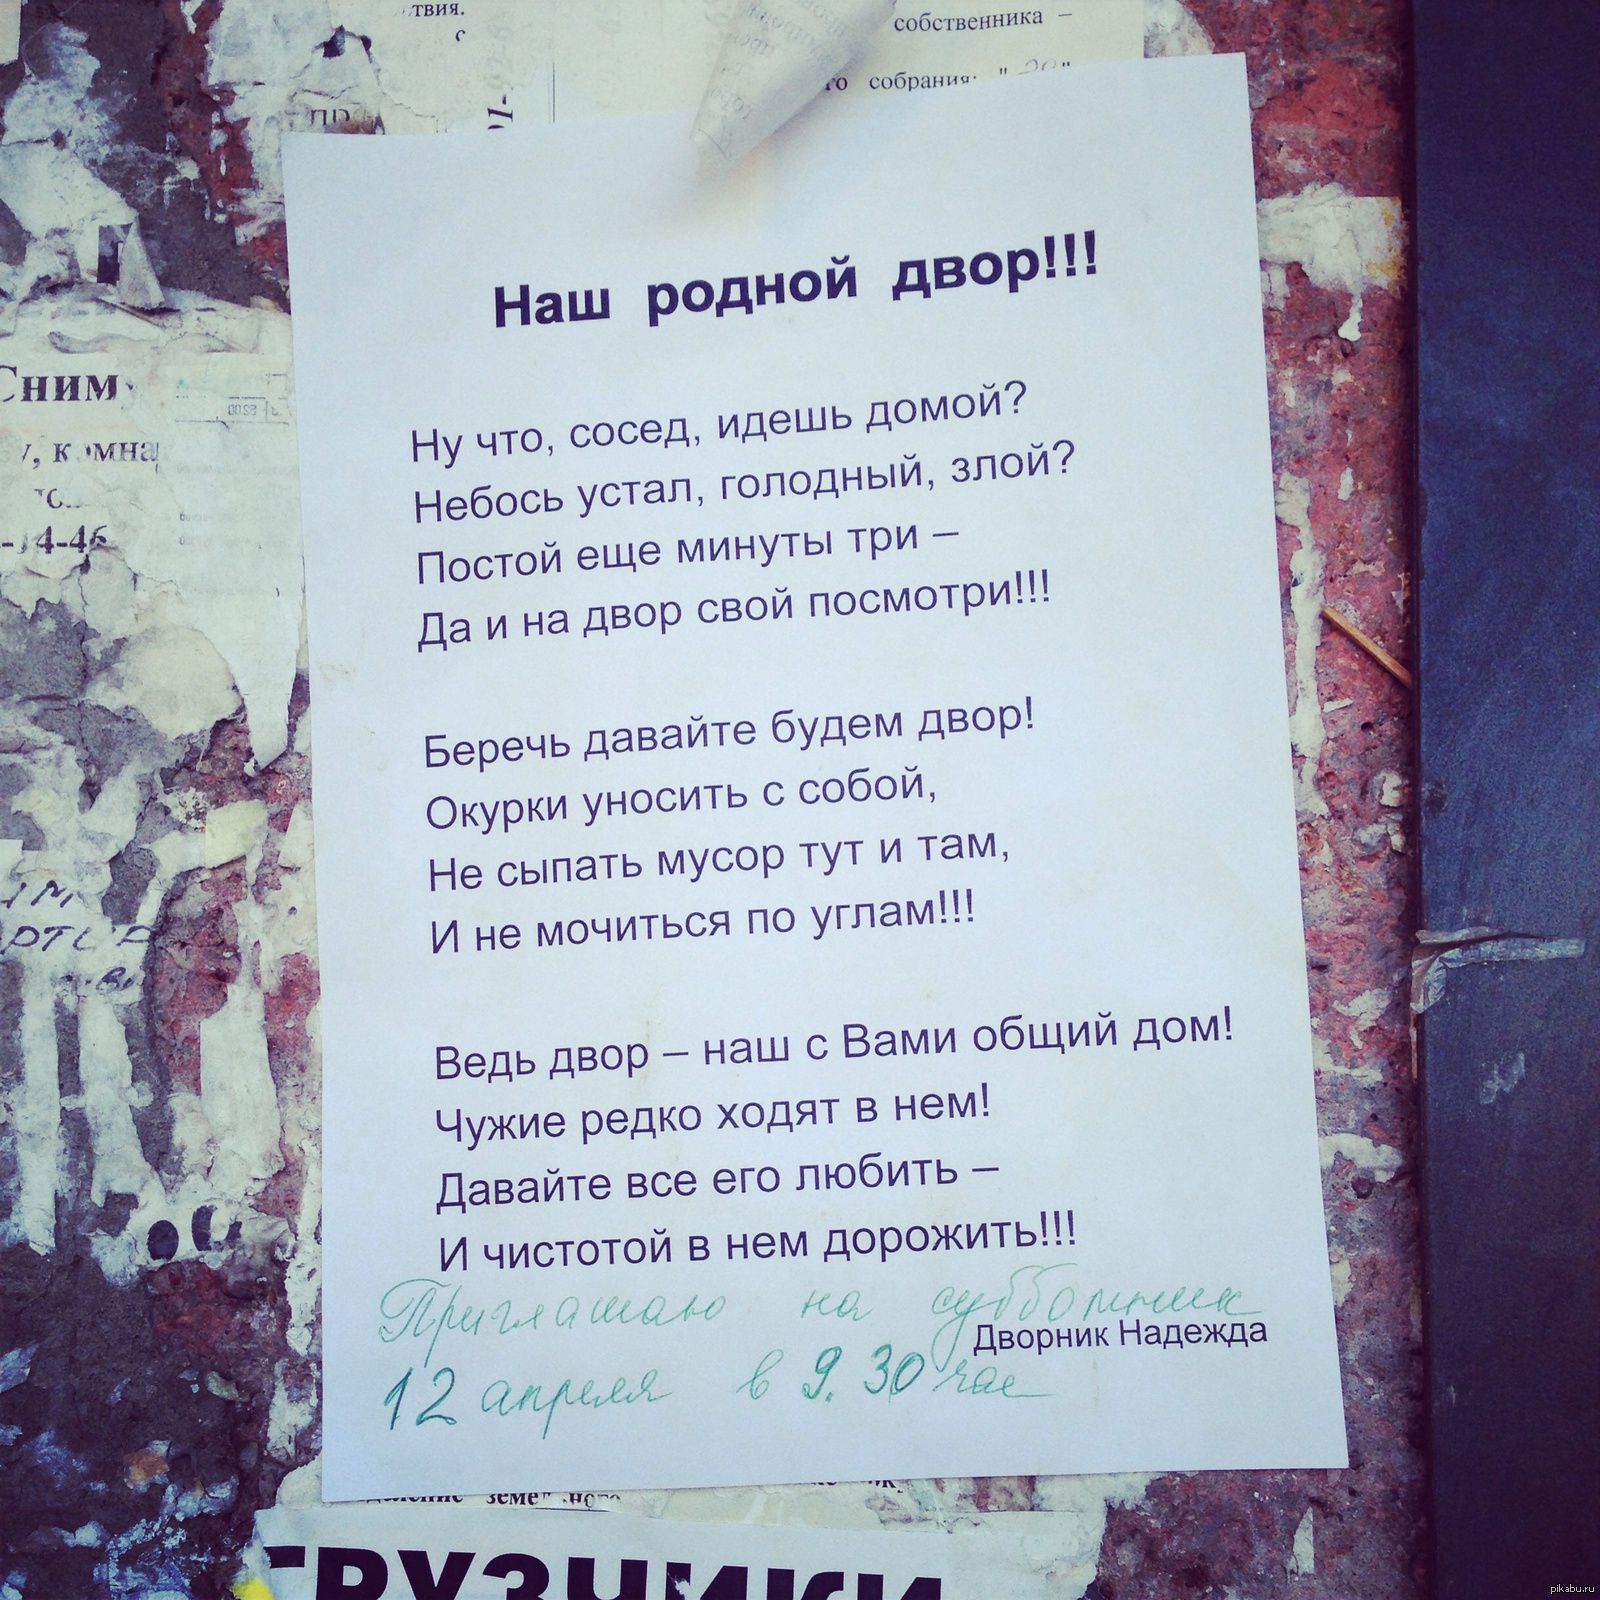 твия.
с
собственника –
го собрания: "
Наш родной двор!!!
Ну что, сосед, идешь домой?
Небось устал, голодный, злой?
Постой еще минуты три –
Да и на двор свой посмотри!!!
Беречь давайте будем двор!
Окурки уносить с собой,
Не сыпать мусор тут и там,
И не мочиться по углам!!!
Ведь двор – наш с Вами общий дом!
Чужие редко ходят в нем!
Давайте все его любить –
И чистотой в нем дорожить!!!
Приглашаю на субботник
Дворник Надежда
12 апреля в 9.30 час
Сним
-14-46
ГРУЗЧИКИ
pikabu.ru